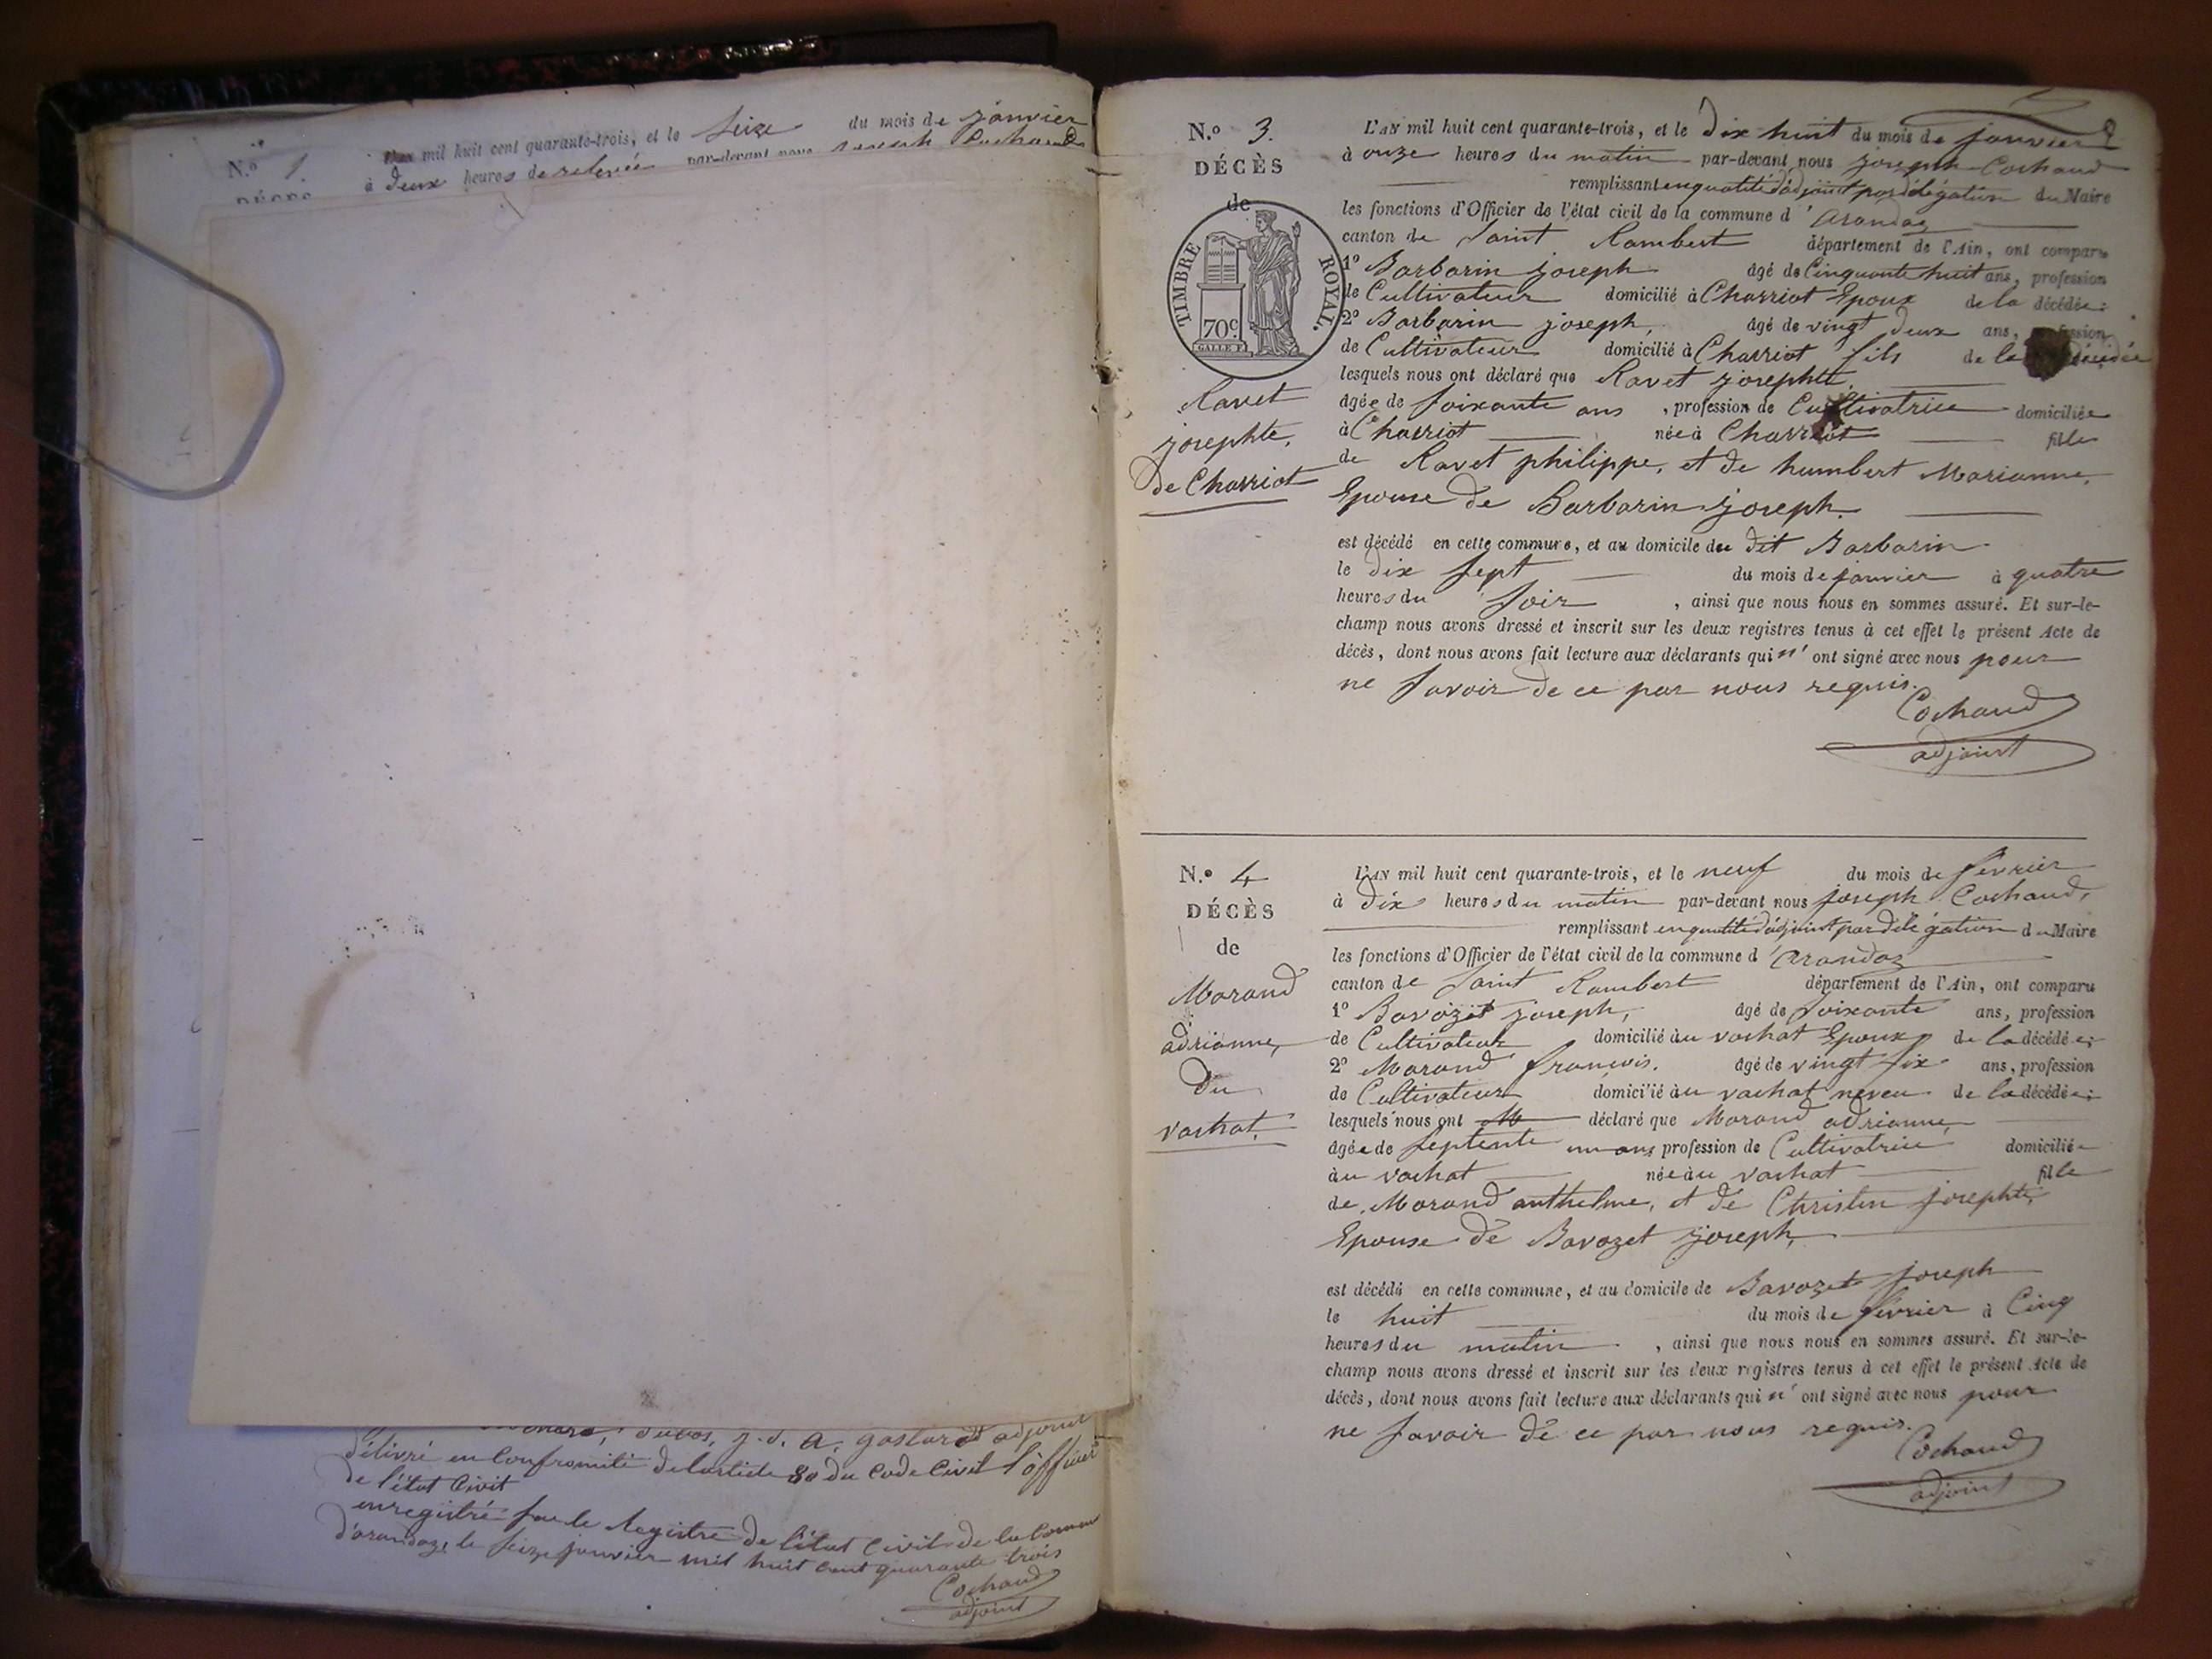 N.o 1.
L'an mil huit cent quarante-trois, et le seize du mois de janvier
à deux heures de relevée par-devant nous joseph Cochaud
DÉCÈS
délivré en Conformité de larticle 80 du Code Civil l'officier
de l'état Civil
enregistré sur le Registre de l'état Civil de la Commune
d'arandaz, le seize janvier mil huit cent quarante trois
Cochaud
adjoint
N.o 3.
DÉCÈS
de
TIMBRE ROYAL.
70c.
GALLE F.
Ravet
josephte,
de Charriot
L'AN mil huit cent quarante-trois, et le dix huit du mois de janvier
à onze heures du matin par-devant nous joseph Cochaud
remplissant en qualité d'adjoint par délégation du Maire
les fonctions d'Officier de l'état civil de la commune d'arandaz
canton de Saint Rambert département de l'Ain, ont comparu
1o Barbarin joseph âgé de Cinquante huit ans, profession
de Cultivateur domicilié à Charriot Epoux de la décédée;
2o Barbarin joseph, âgé de vingt deux ans, profession
de Cultivateur domicilié à Charriot fils de la décédée
lesquels nous ont déclaré que Ravet josephte,
âgée de soixante ans, profession de Cultivatrice domiciliée
à Charriot née à Charriot fille
de Ravet philippe, et de humbert Marianne,
Epouse de Barbarin joseph.
est décédé en cette commune, et au domicile du dit Barbarin
le dix sept du mois de janvier à quatre
heures du soir, ainsi que nous nous en sommes assuré. Et sur-le-
champ nous avons dressé et inscrit sur les deux registres tenus à cet effet le présent Acte de
décès, dont nous avons fait lecture aux déclarants qui n'ont signé avec nous pour
ne savoir de ce par nous requis.
Cochaud
adjoint
N.o 4
DÉCÈS
de
Morand
adrianne,
du
vachat.
L'AN mil huit cent quarante-trois, et le neuf du mois de février
à dix heures du matin par-devant nous joseph Cochaud,
remplissant en qualité d'adjoint par délégation du Maire
les fonctions d'Officier de l'état civil de la commune d'arandaz
canton de Saint Rambert département de l'Ain, ont comparu
1o Bavozet joseph, âgé de soixante ans, profession
de Cultivateur domicilié au vachat Epoux de la décédée;
2o Morand françois. âgé de vingt six ans, profession
de Cultivateur domicilié au vachat neveu de la décédée;
lesquels nous ont déclaré que Morand adrianne,
âgée de septente un ans profession de Cultivatrice domiciliée
au vachat née au vachat fille
de Morand anthelme, et de Christin josephte,
Epouse de Bavozet joseph,
est décédé en cette commune, et au domicile de Bavozet joseph
le huit du mois de février à Cinq
heures du matin, ainsi que nous nous en sommes assuré. Et sur-le-
champ nous avons dressé et inscrit sur les deux registres tenus à cet effet le présent Acte de
décès, dont nous avons fait lecture aux déclarants qui n'ont signé avec nous pour
ne savoir de ce par nous requis.
Cochaud
adjoint